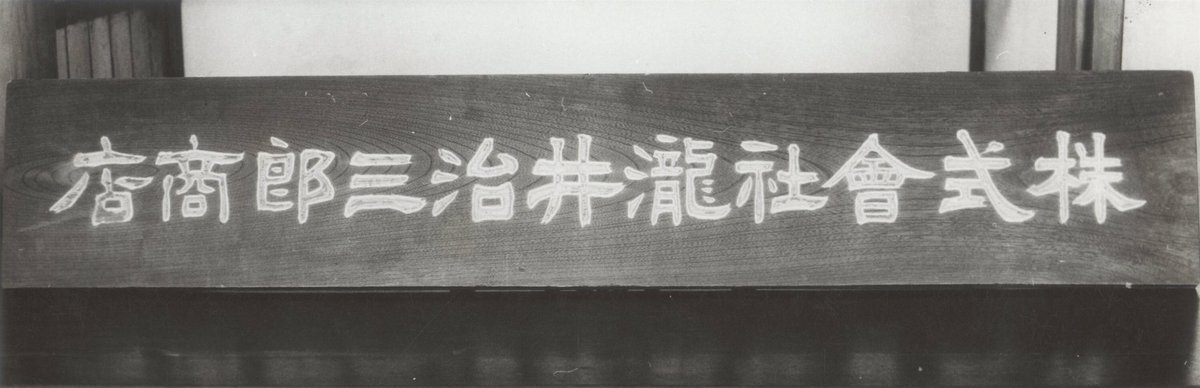 株式會社瀧井治三郎商店